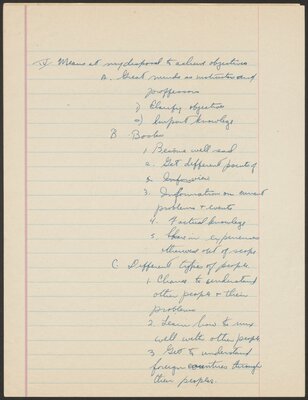 V Means at my disposal to achieve objectives
A. Great minds as instructors and
professors
1) Clarify objectives
2) Impart knowlege
B Books
1 Become well read
2. Get different points of
& 
3. Information on current
problems & events
4. Factual knowlege
5. Share in experiences
otherwise out of scope
C. Different types of people
1. Chance to understand
other people & their
problems
2 Learn how to mix
well with other people
3 Get to understand
foreign countries through
their peoples.